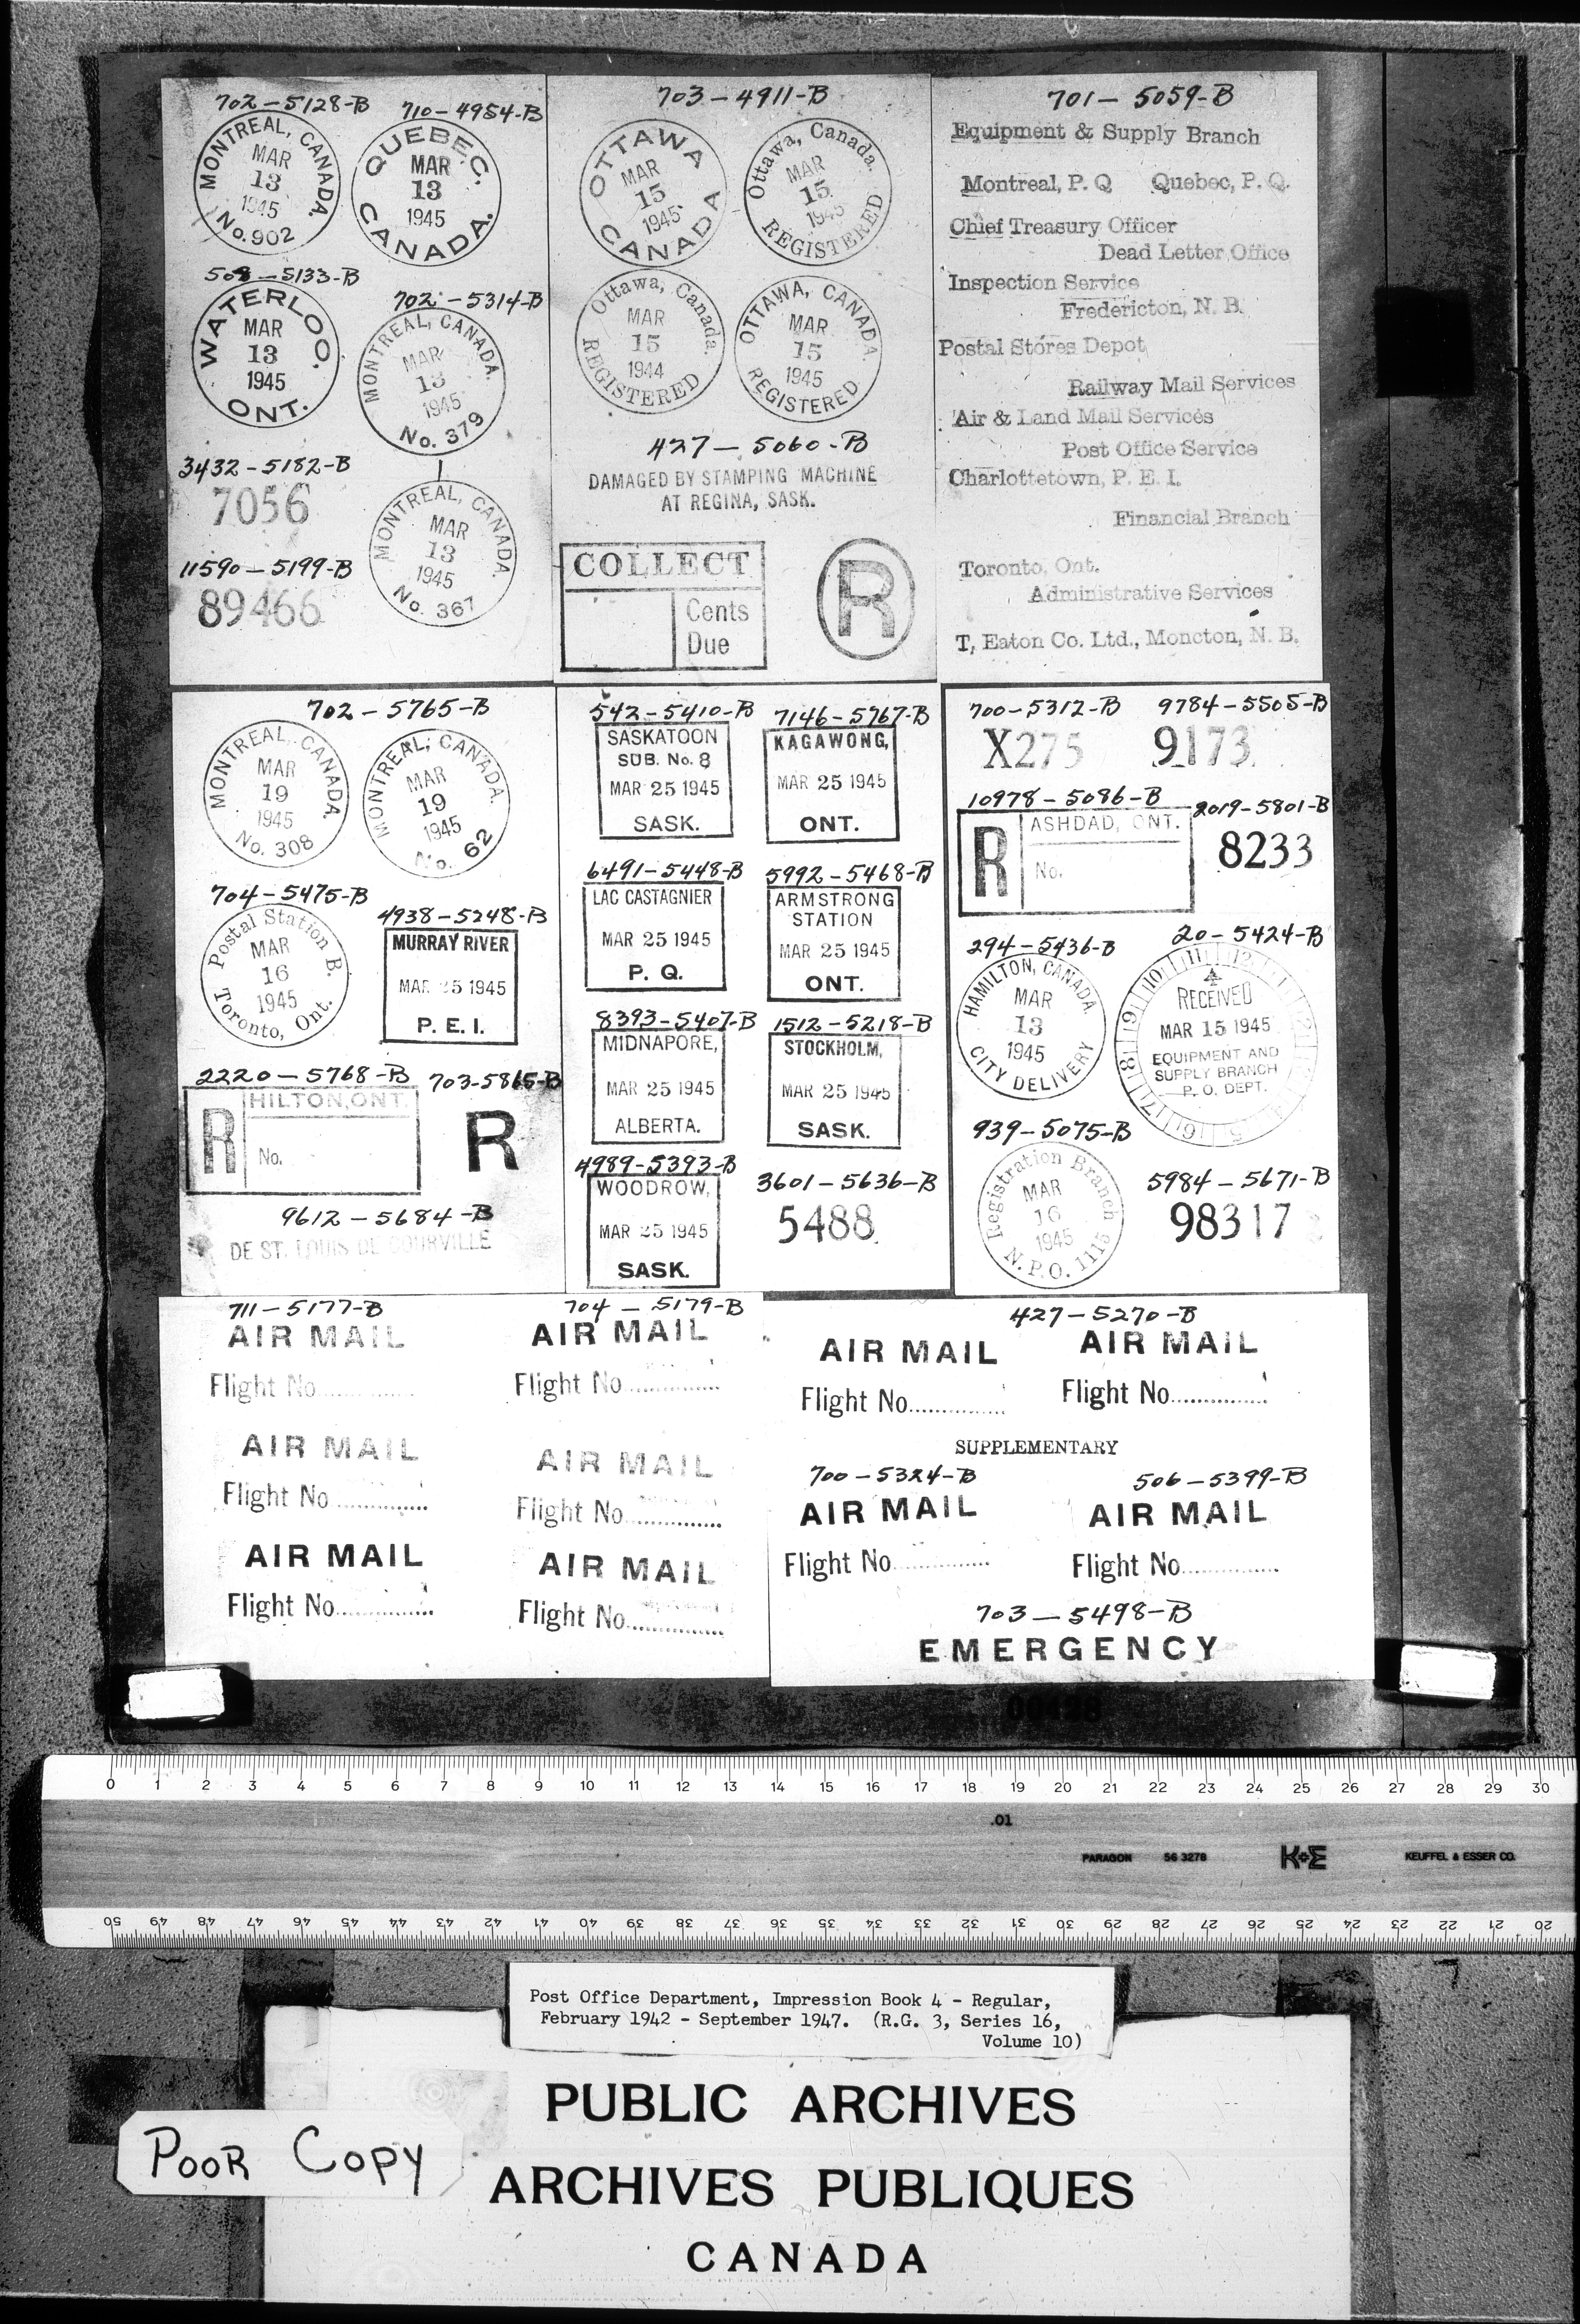 702-5128-B 710-4954-B
MONTREAL, CANADA.
MAR
13
1945
No. 902
QUEBEC.
MAR
13
1945
CANADA.
5133-B
WATERLOO.
MAR
13
1945
ONT.
702-5314-B
MONTREAL, CANADA.
MAR
13
1945
No. 379
3432-5182-B
7056
MONTREAL, CANADA.
MAR
13
1945
No. 367
11590-5199-B
89466
703-4911-B
OTTAWA
MAR
15
1945
CANADA
Ottawa, Canada.
MAR
15
1945
REGISTERED
Ottawa, Canada.
MAR
15
1944
REGISTERED
OTTAWA, CANADA.
MAR
15
1945
REGISTERED
427-5060-B
DAMAGED BY STAMPING MACHINE
AT REGINA, SASK.
COLLECT
Cents
Due
R
701-5059-B
Equipment & Supply Branch
Montreal, P. Q Quebec, P. Q.
Chief Treasury Officer
Dead Letter Office
Inspection Service
Fredericton, N. B.
Postal Stores Depot
Railway Mail Services
Air & Land Mail Services
Post Office Service
Charlottetown, P. E. I.
Financial Branch
Toronto, Ont.
Administrative Services
T, Eaton Co. Ltd., Moncton, N. B.
702-5765-B
MONTREAL, CANADA.
MAR
19
1945
No. 308
MONTREAL, CANADA.
MAR
19
1945
No. 62
704-5475-B
Postal Station B.
MAR
16
1945
Toronto, Ont.
4938-5248-B
MURRAY RIVER
MAR 25 1945
P. E. I.
2220-5768-B
R
HILTON, ONT.
No.
703-5865-B
R
9612-5684-B
DE ST. LOUIS DE COURVILLE
542-5410-B
SASKATOON
SUB. No. 8
MAR 25 1945
SASK.
7146-5767-B
KAGAWONG,
MAR 25 1945
ONT.
6491-5448-B
LAC CASTAGNIER
MAR 25 1945
P. Q.
5992-5468-B
ARMSTRONG
STATION
MAR 25 1945
ONT.
8393-5407-B
MIDNAPORE,
MAR 25 1945
ALBERTA.
1512-5218-B
STOCKHOLM,
MAR 25 1945
SASK.
4989-5393-B
WOODROW,
MAR 25 1945
SASK.
3601-5636-B
5488
700-5312-B 9784-5505-B
X275 9173
10978-5086-B
R
ASHDAD, ONT.
No.
2019-5801-B
8233
294-5436-B
HAMILTON, CANADA.
MAR
13
1945
CITY DELIVERY
20-5424-B
RECEIVED
MAR 15 1945
EQUIPMENT AND
SUPPLY BRANCH
P. O. DEPT.
939-5075-B
Registration Branch
MAR
16
1945
N.P.O. 1115
5984-5671-B
98317
711-5177-B 704-5179-B
AIR MAIL AIR MAIL
Flight No.............. Flight No..............
AIR MAIL AIR MAIL
Flight No.............. Flight No..............
AIR MAIL AIR MAIL
Flight No.............. Flight No..............
427-5270-B
AIR MAIL AIR MAIL
Flight No.............. Flight No..............
SUPPLEMENTARY
700-5324-B 506-5399-B
AIR MAIL AIR MAIL
Flight No.............. Flight No..............
703-5498-B
EMERGENCY
00428
0 1 2 3 4 5 6 7 8 9 10 11 12 13 14 15 16 17 18 19 20 21 22 23 24 25 26 27 28 29 30
.01
PARAGON 56 3278 K+E KEUFFEL & ESSER CO.
50 49 48 47 46 45 44 43 42 41 40 39 38 37 36 35 34 33 32 31 30 29 28 27 26 25 24 23 22 21 20
Post Office Department, Impression Book 4 - Regular,
February 1942 - September 1947. (R.G. 3, Series 16,
Volume 10)
PUBLIC ARCHIVES
POOR COPY
ARCHIVES PUBLIQUES
CANADA